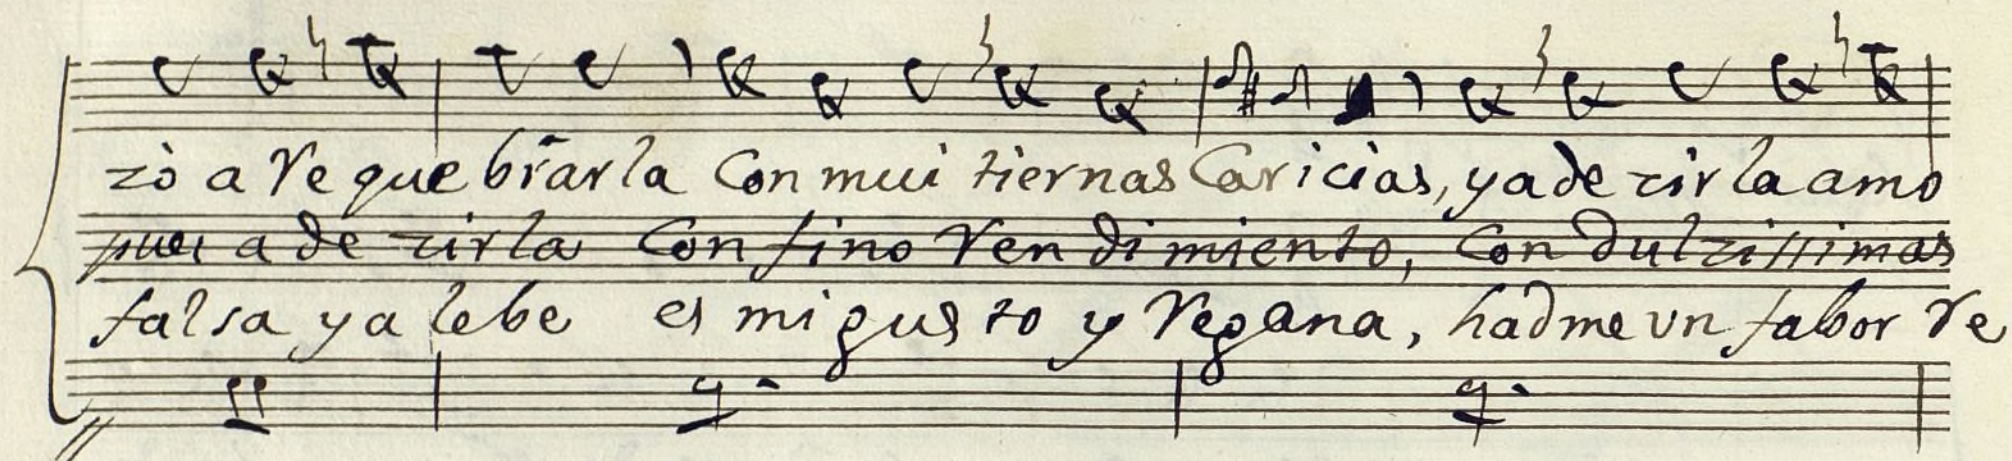 zò a Requebrarla Con mui tiernas Caricias, y a dezirla amo
pues a dezirla Con fino Rendimiento, Con dulzissimas
falsa y alebe es mi gusto y Regana, hadme un fabor Re